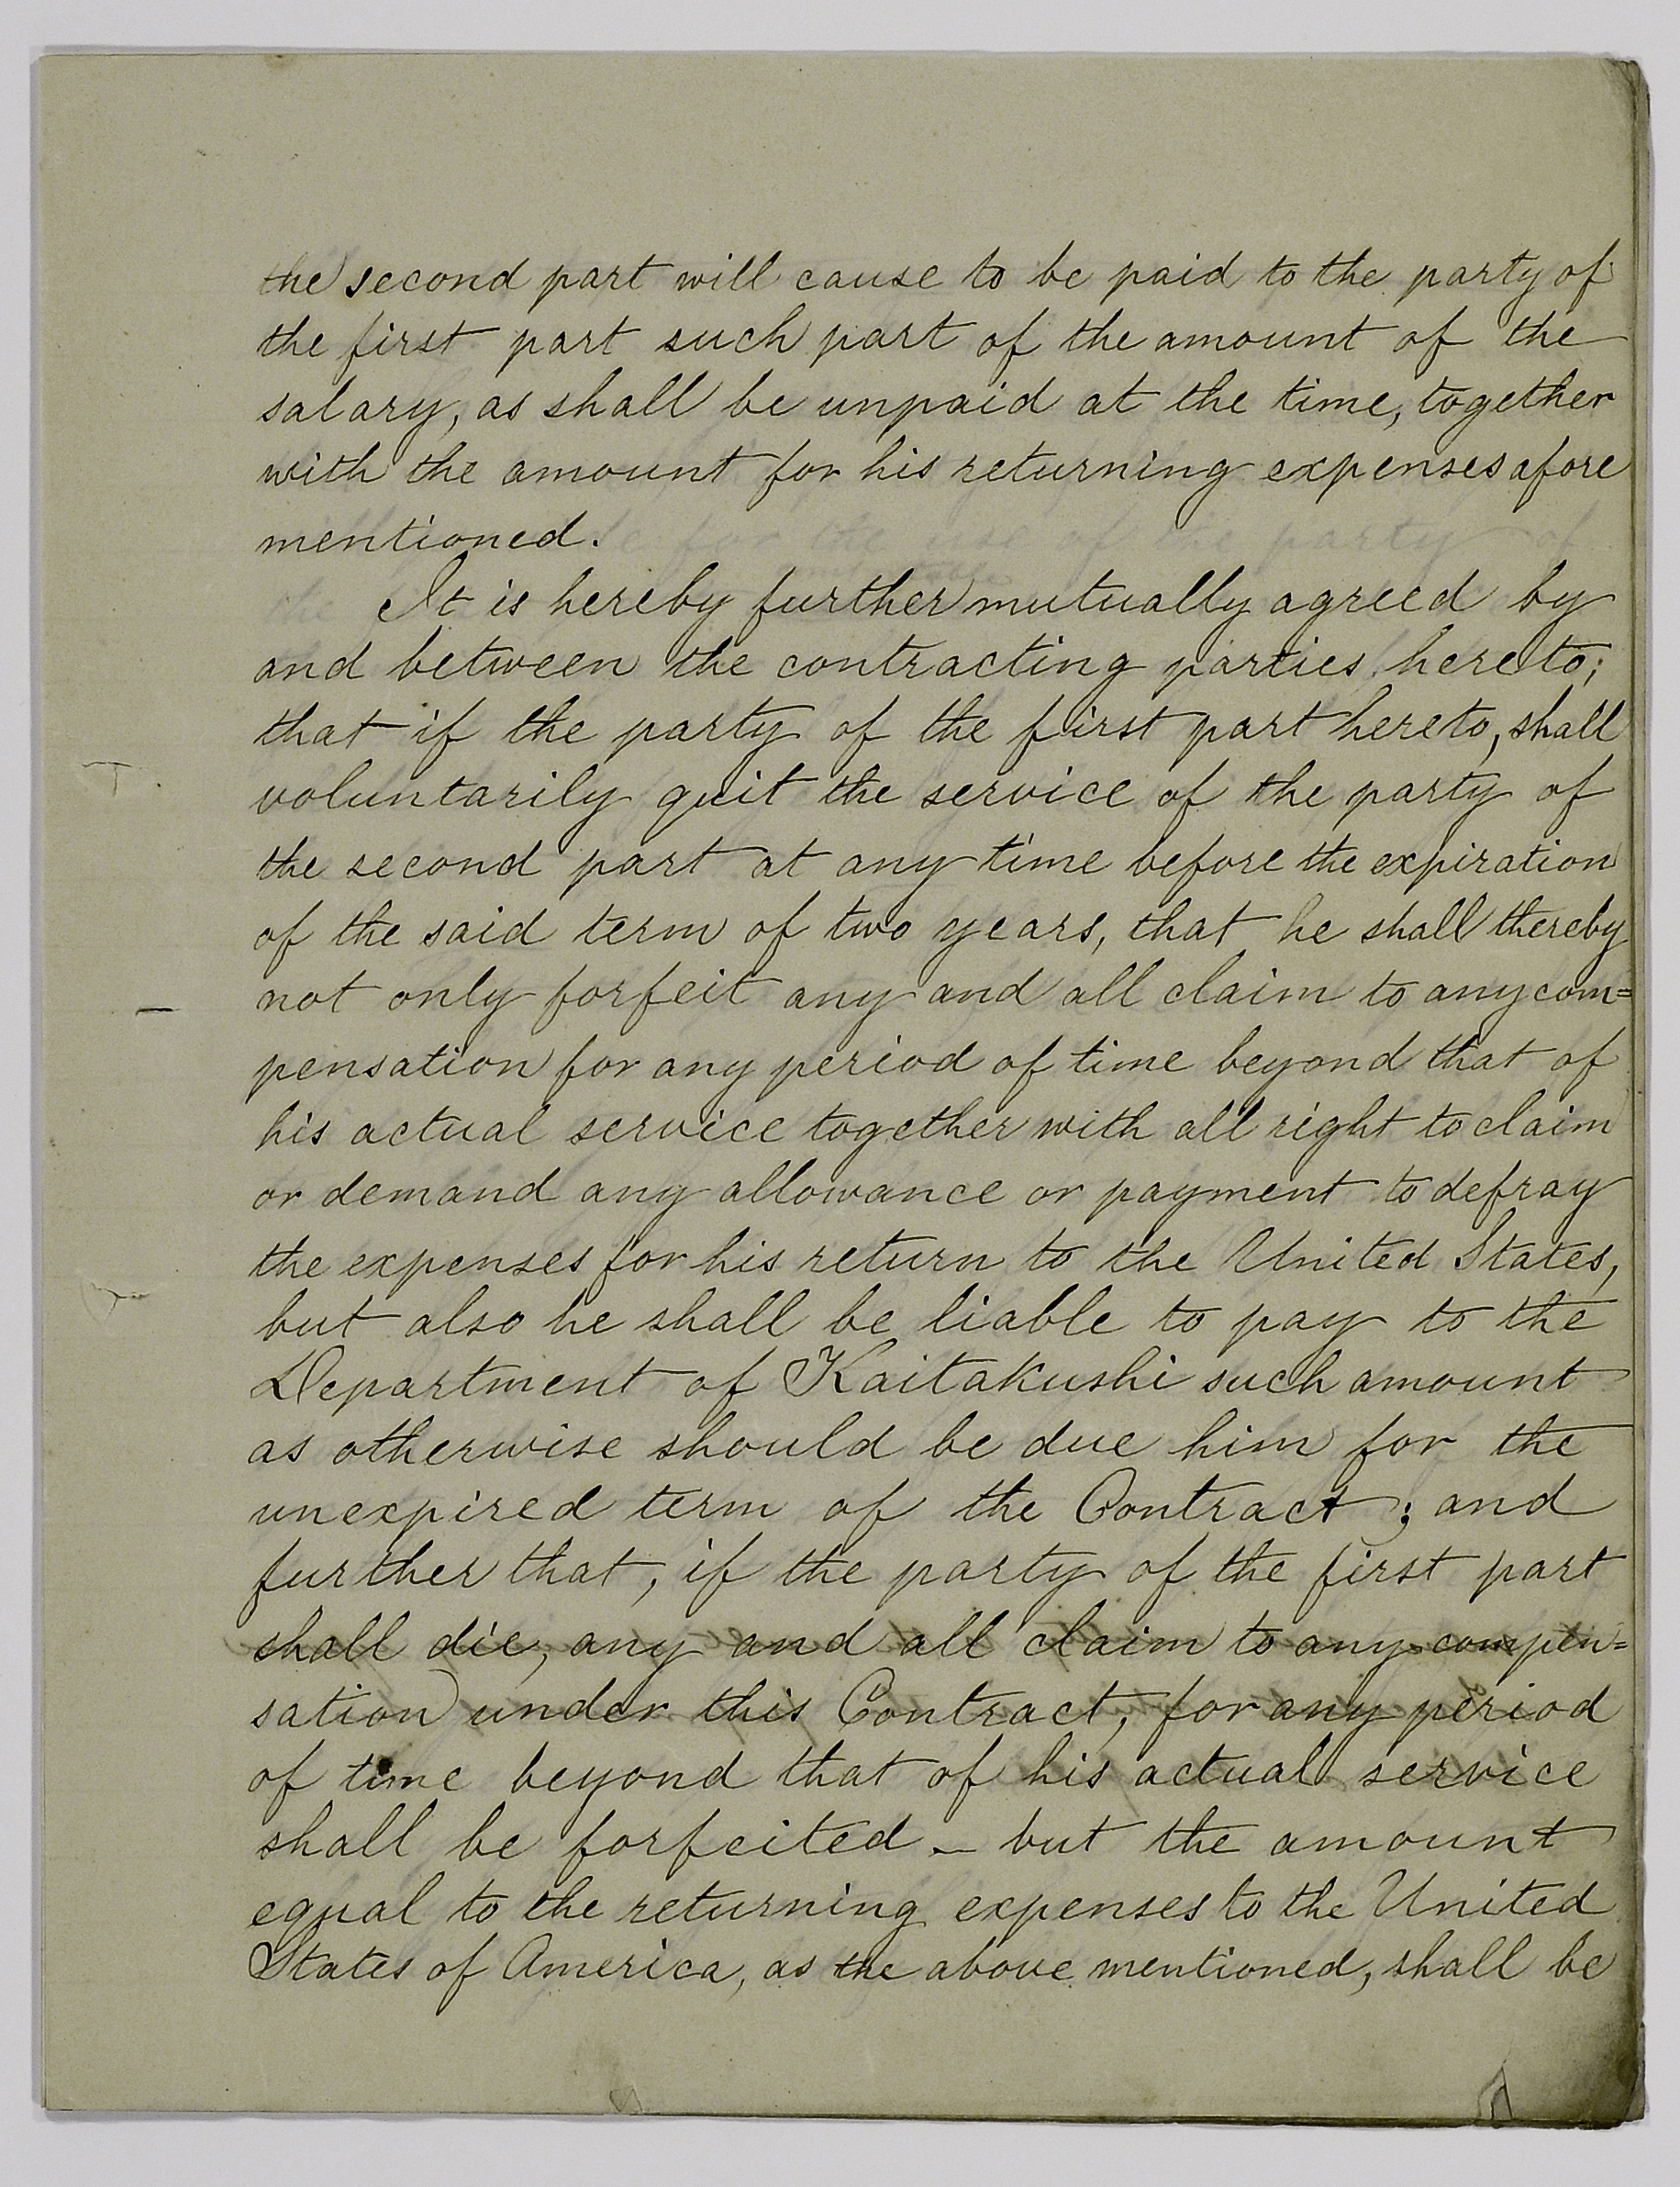 the second part will cause to be paid to the party of
the first part such part of the amount of the
salary, as shall be unpaid at the time, together
with the amount for his returning expenses afore
mentioned.
It is hereby further mutually agreed by
and between the contracting parties hereto;
that if the party of the first part hereto, shall
voluntarily quit the service of the party of
the second part at any time before the expiration
of the said term of two years, that he shall thereby
not only forfeit any and all claim to any com=
pensation for any period of time beyond that of
his actual service together with all right to claim
or demand any allowance or payment to defray
the expenses for his return to the United States,
but also he shall be liable to pay to the
Department of Kaitakushi such amount
as otherwise should be due him for the
unexpired term of the Contract; and
further that, if the party of the first part
shall die, any and all claim to any compen=
sation under this Contract, for any period
of time beyond that of his actual service
shall be forfeited – but the amount
equal to the returning expenses to the United
States of America, as the above mentioned, shall be